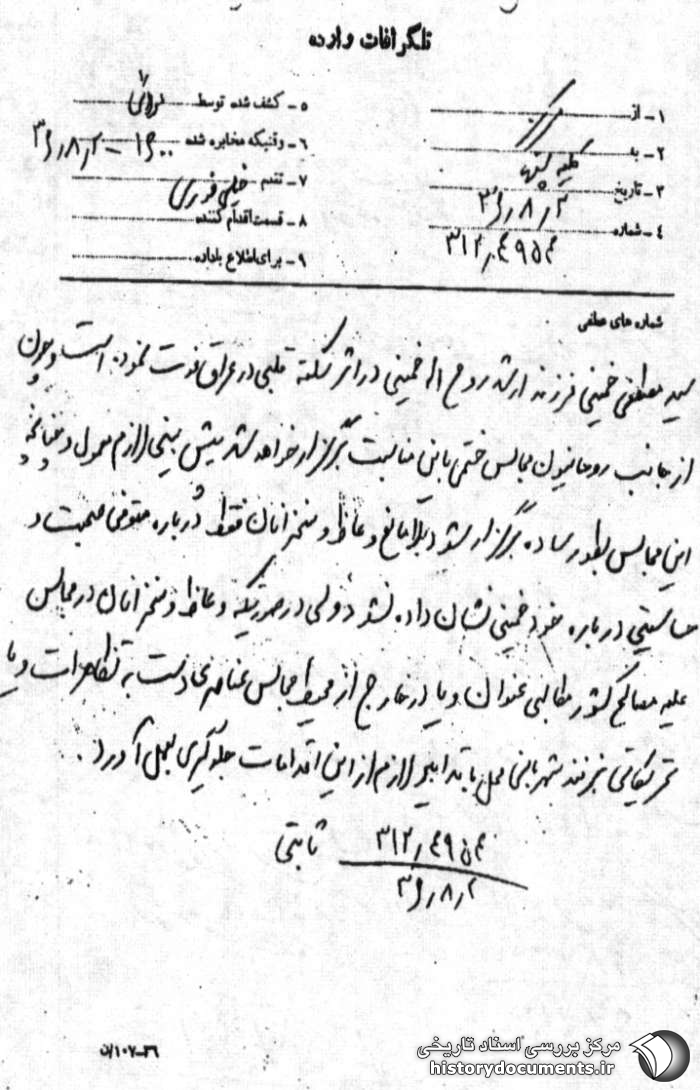 تلگرافات وارده
۱ - از
۲ - به مرکز
۳ - تاریخ کلیه
۳۶٫۸٫۲
۴ - شماره ۳۱۲٫۴۹۵۴
۵ - کشف شده توسط
۶ - وقتیکه مخابره شده ۱۶۰۰ - ۳۶٫۸٫۲
۷ - تقدم خیلی فوری
۸ - قسمت اقدام کننده
۹ - برای اطلاع باداده
شماره های عطفی
سید مصطفی خمینی فرزند ارشد روح اله خمینی در اثر سکته قلبی در عراق فوت نموده است و چون
از جانب روحانیون مجالس ختمی باین مناسبت برگزار خواهد شد پیش بینی لازم معمول و چنانچه
این مجالس بطور ساده برگزار شود بلامانع و وعاظ و سخنرانان فقط درباره متوفی صحبت و
حساسیتی درباره خود خمینی نشان داده نشود ولی در صورتیکه وعاظ و سخنرانان در مجالس
علیه مصالح کشور مطالبی عنوان و یا در خارج از محیط مجالس عناصر حاد دست به تظاهرات و یا
تحریکاتی بزنند شهربانی محل با تدابیر لازم از این اقدامات جلوگیری بعمل آورد.
۳۱۲٫۴۹۵۴ ثابتی
۳۶٫۸٫۲
۳۶-۱۰۷/ن
مرکز بررسی اسناد تاریخی
historydocuments.ir